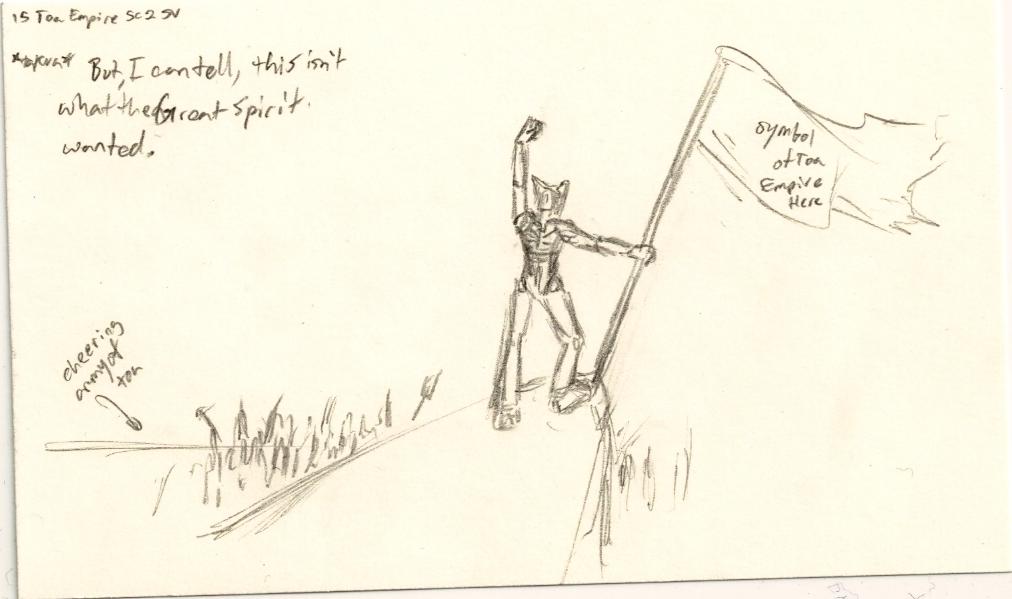 15 Toa Empire SC2 SV
*takua* But, I can tell, this isn't
what the Great Spirit
wanted.
symbol
of Toa
Empire
Here
cheering
army of
toa